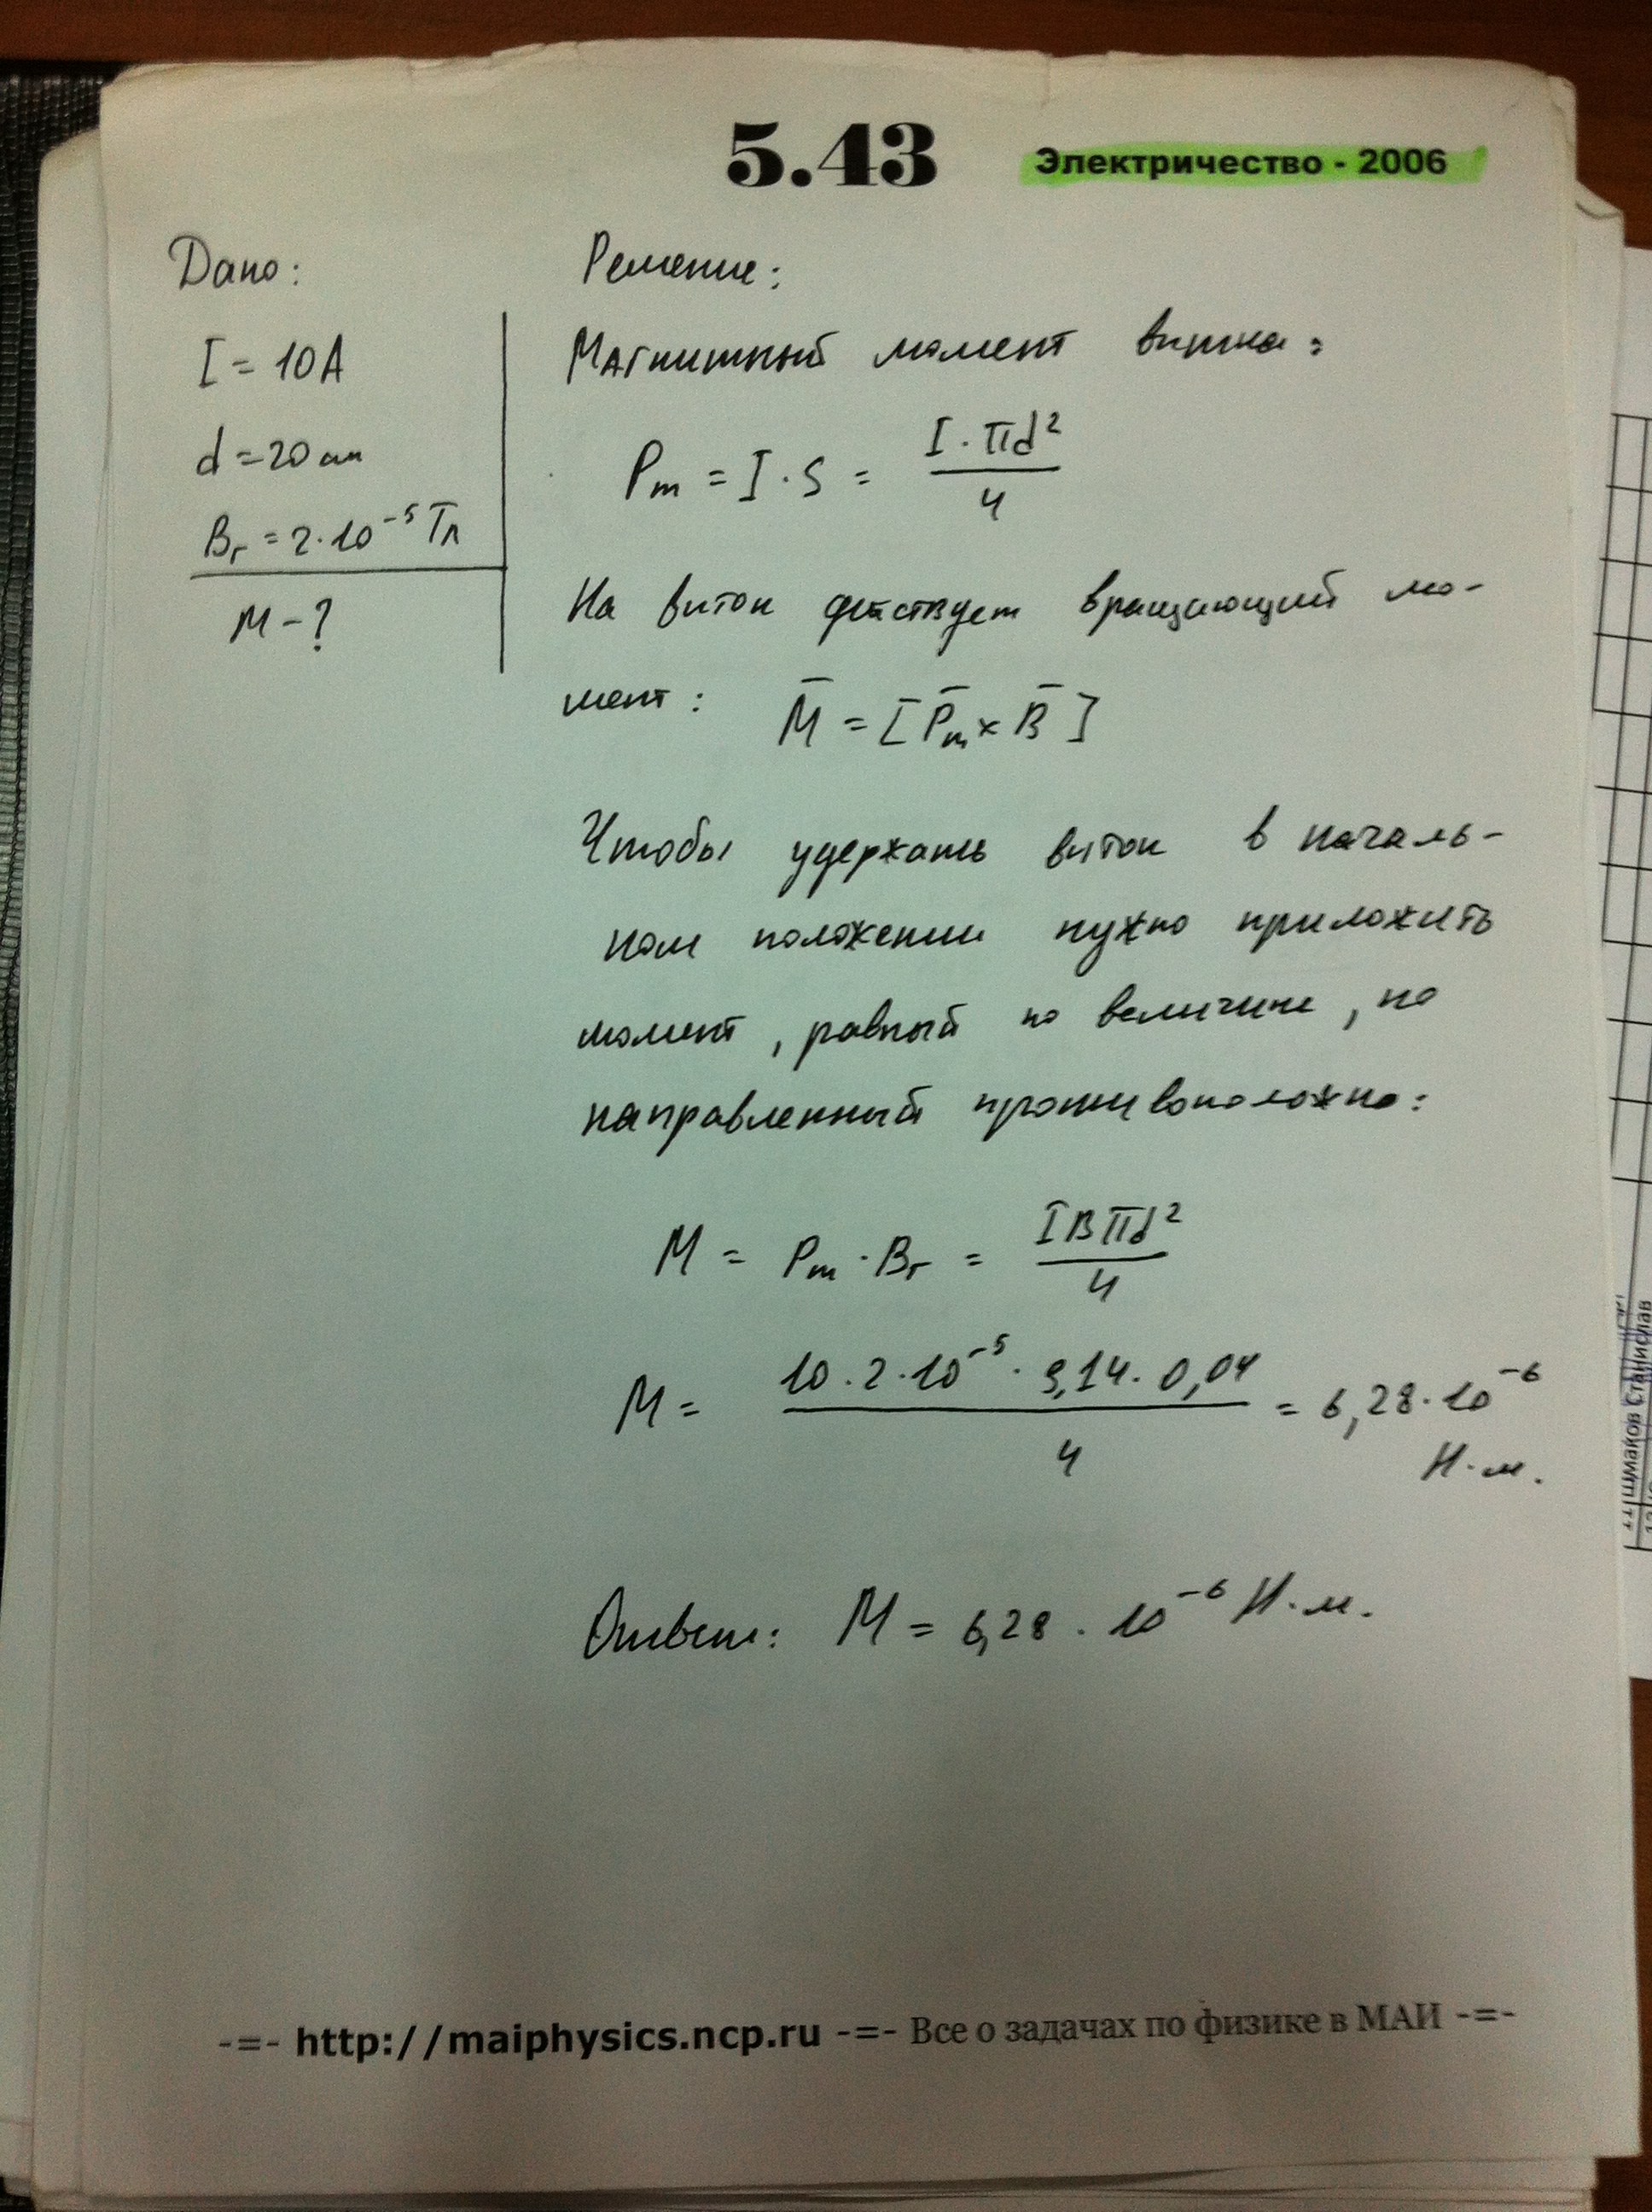 5.43 Электричество - 2006
Дано:
I = 10 А
d = 20 см
Bг = 2·10⁻⁵ Тл
M - ?
Решение:
Магнитный момент витка:
Pm = I·S = I·πd²/4
На виток действует вращающий мо-
мент: M̄ = [P̄m × B̄]
Чтобы удержать виток в началь-
ном положении нужно приложить
момент, равный по величине, но
направленный противоположно:
M = Pm·Bг = IBπd²/4
M = 10·2·10⁻⁵·3,14·0,04/4 = 6,28·10⁻⁶
Н·м.
Ответ: M = 6,28·10⁻⁶ Н·м.
-=- http://maiphysics.ncp.ru -=- Все о задачах по физике в МАИ -=-
Шмаков Станислав